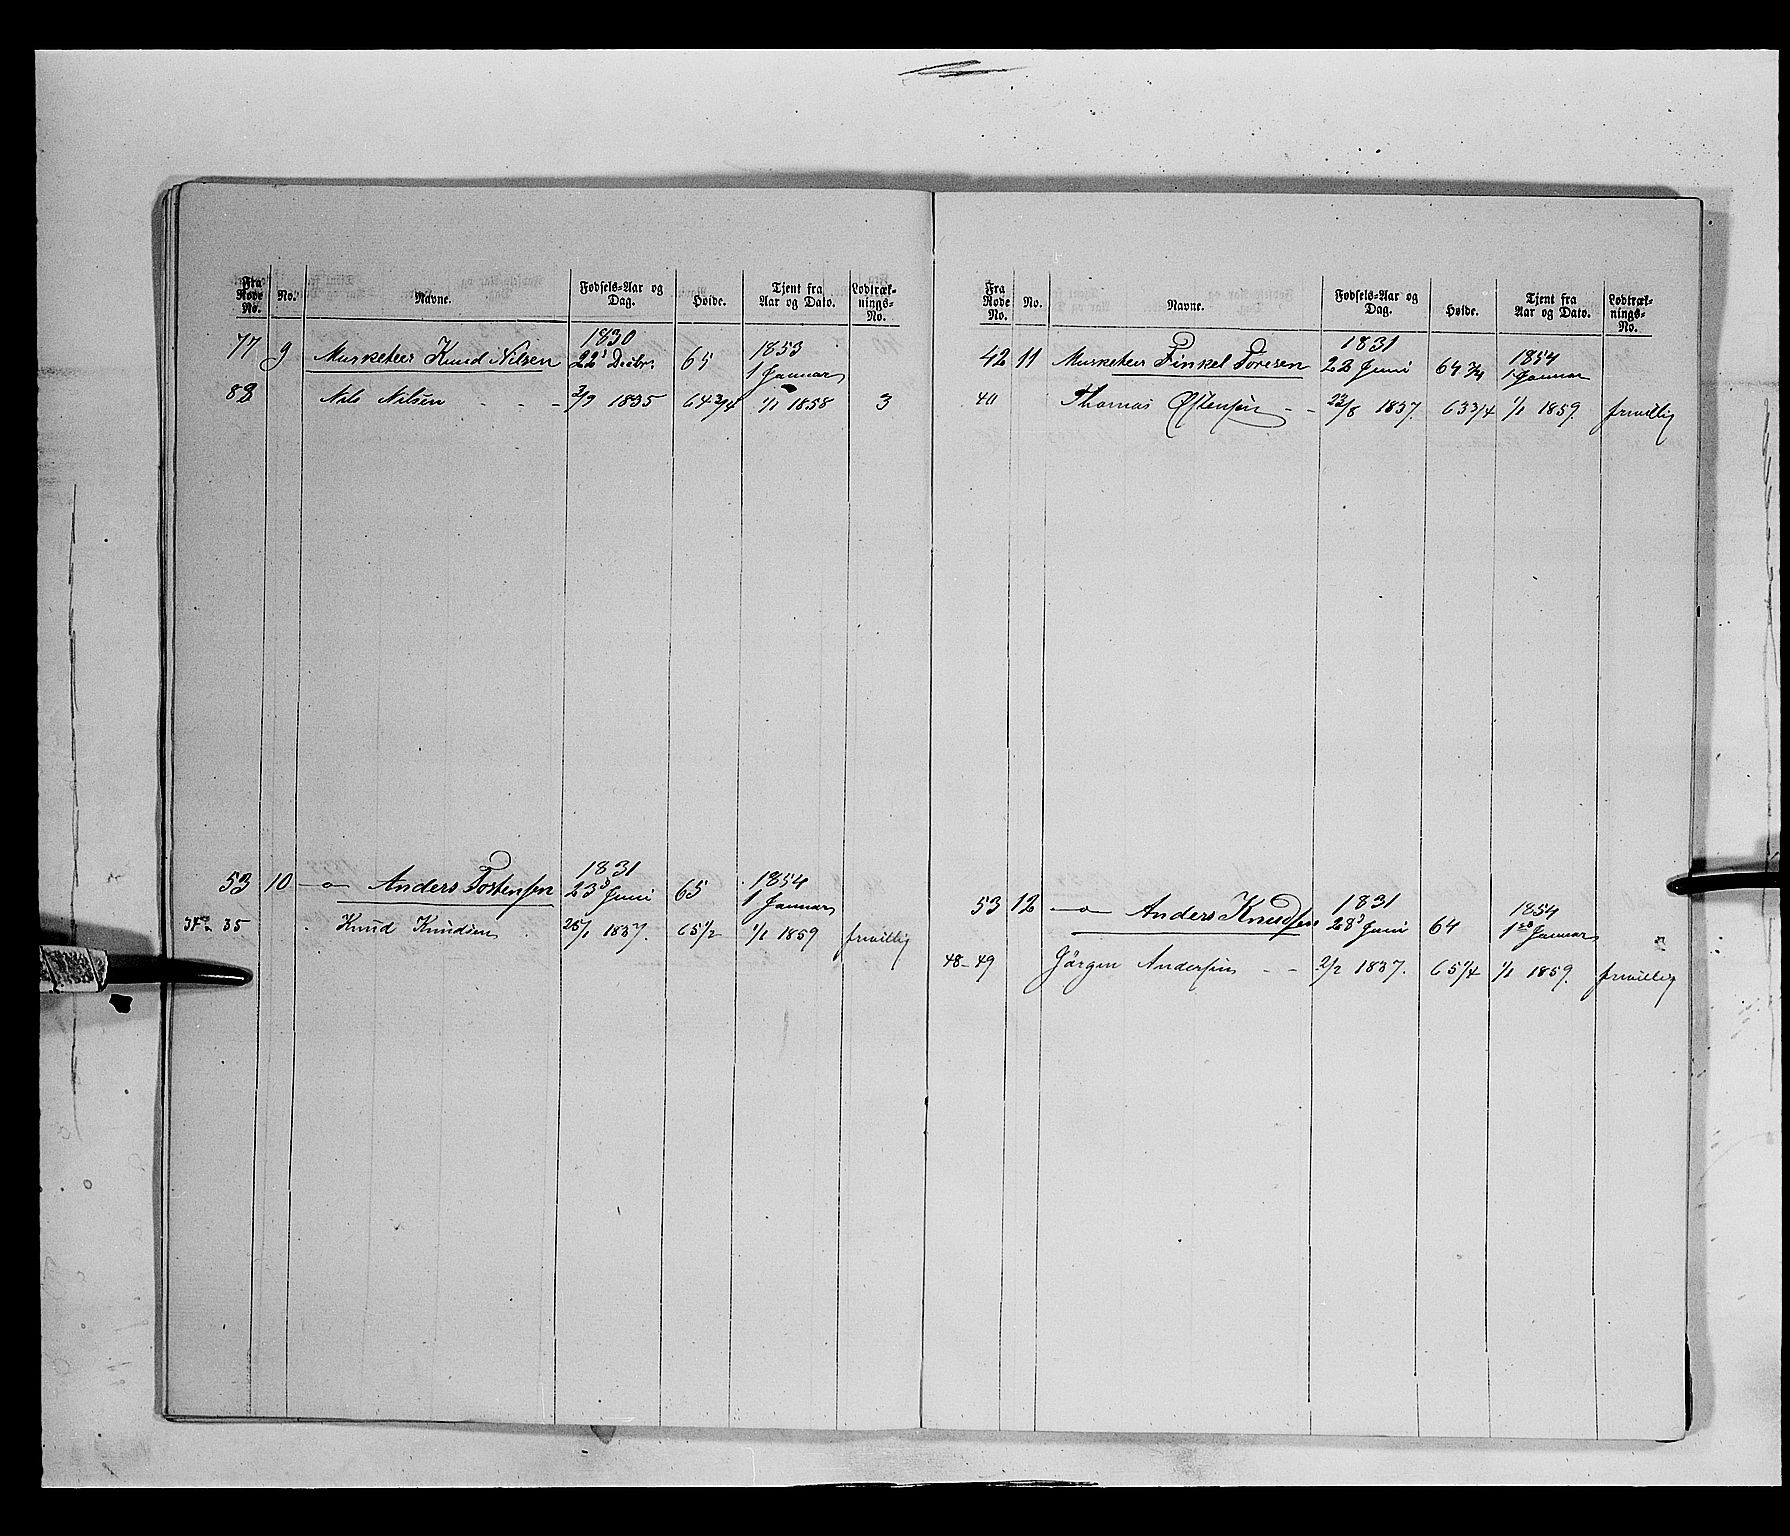 Fra Rode No. | No. | Navne. | Fødsels-Aar og Dag. | Høide. | Tjent fra Aar og Dato. | Lodtræk-nings-No.
77 | 9 | Musketeer Knud Nilsen | 1830 22 Decbr. | 65 | 1853 1 Januar
88 | Nils Nilsen - - - | 2/9 1835 | 64 3/4 | 1/1 1858 | 3
53 | 10 | —o— Anders Tostensen | 1831 23 Juni | 65 | 1854 1 Januar
35 | Knud Knudsen | 25/1 1837. | 65 1/2 | 1/1 1859 | frivillig
Fra Rode No. | No. | Navne. | Fødsels-Aar og Dag. | Høide. | Tjent fra Aar og Dato. | Lodtræk-nings-No.
42 | 11 | Musketeer Finkel Toresen | 1831 22 Juni | 64 3/4 | 1854 1 Januar
40 | Thomas Østensen - - | 22/8 1837. | 63 3/4 | 1/1 1859. | frivillig
53 | 12 | —o— Anders Knudsen | 1831 28 Juni | 64 | 1854 1 Januar
48-49 | Jörgen Andersen - - | 2/2 1837. | 65 1/4 | 1/1 1859. | frivillig